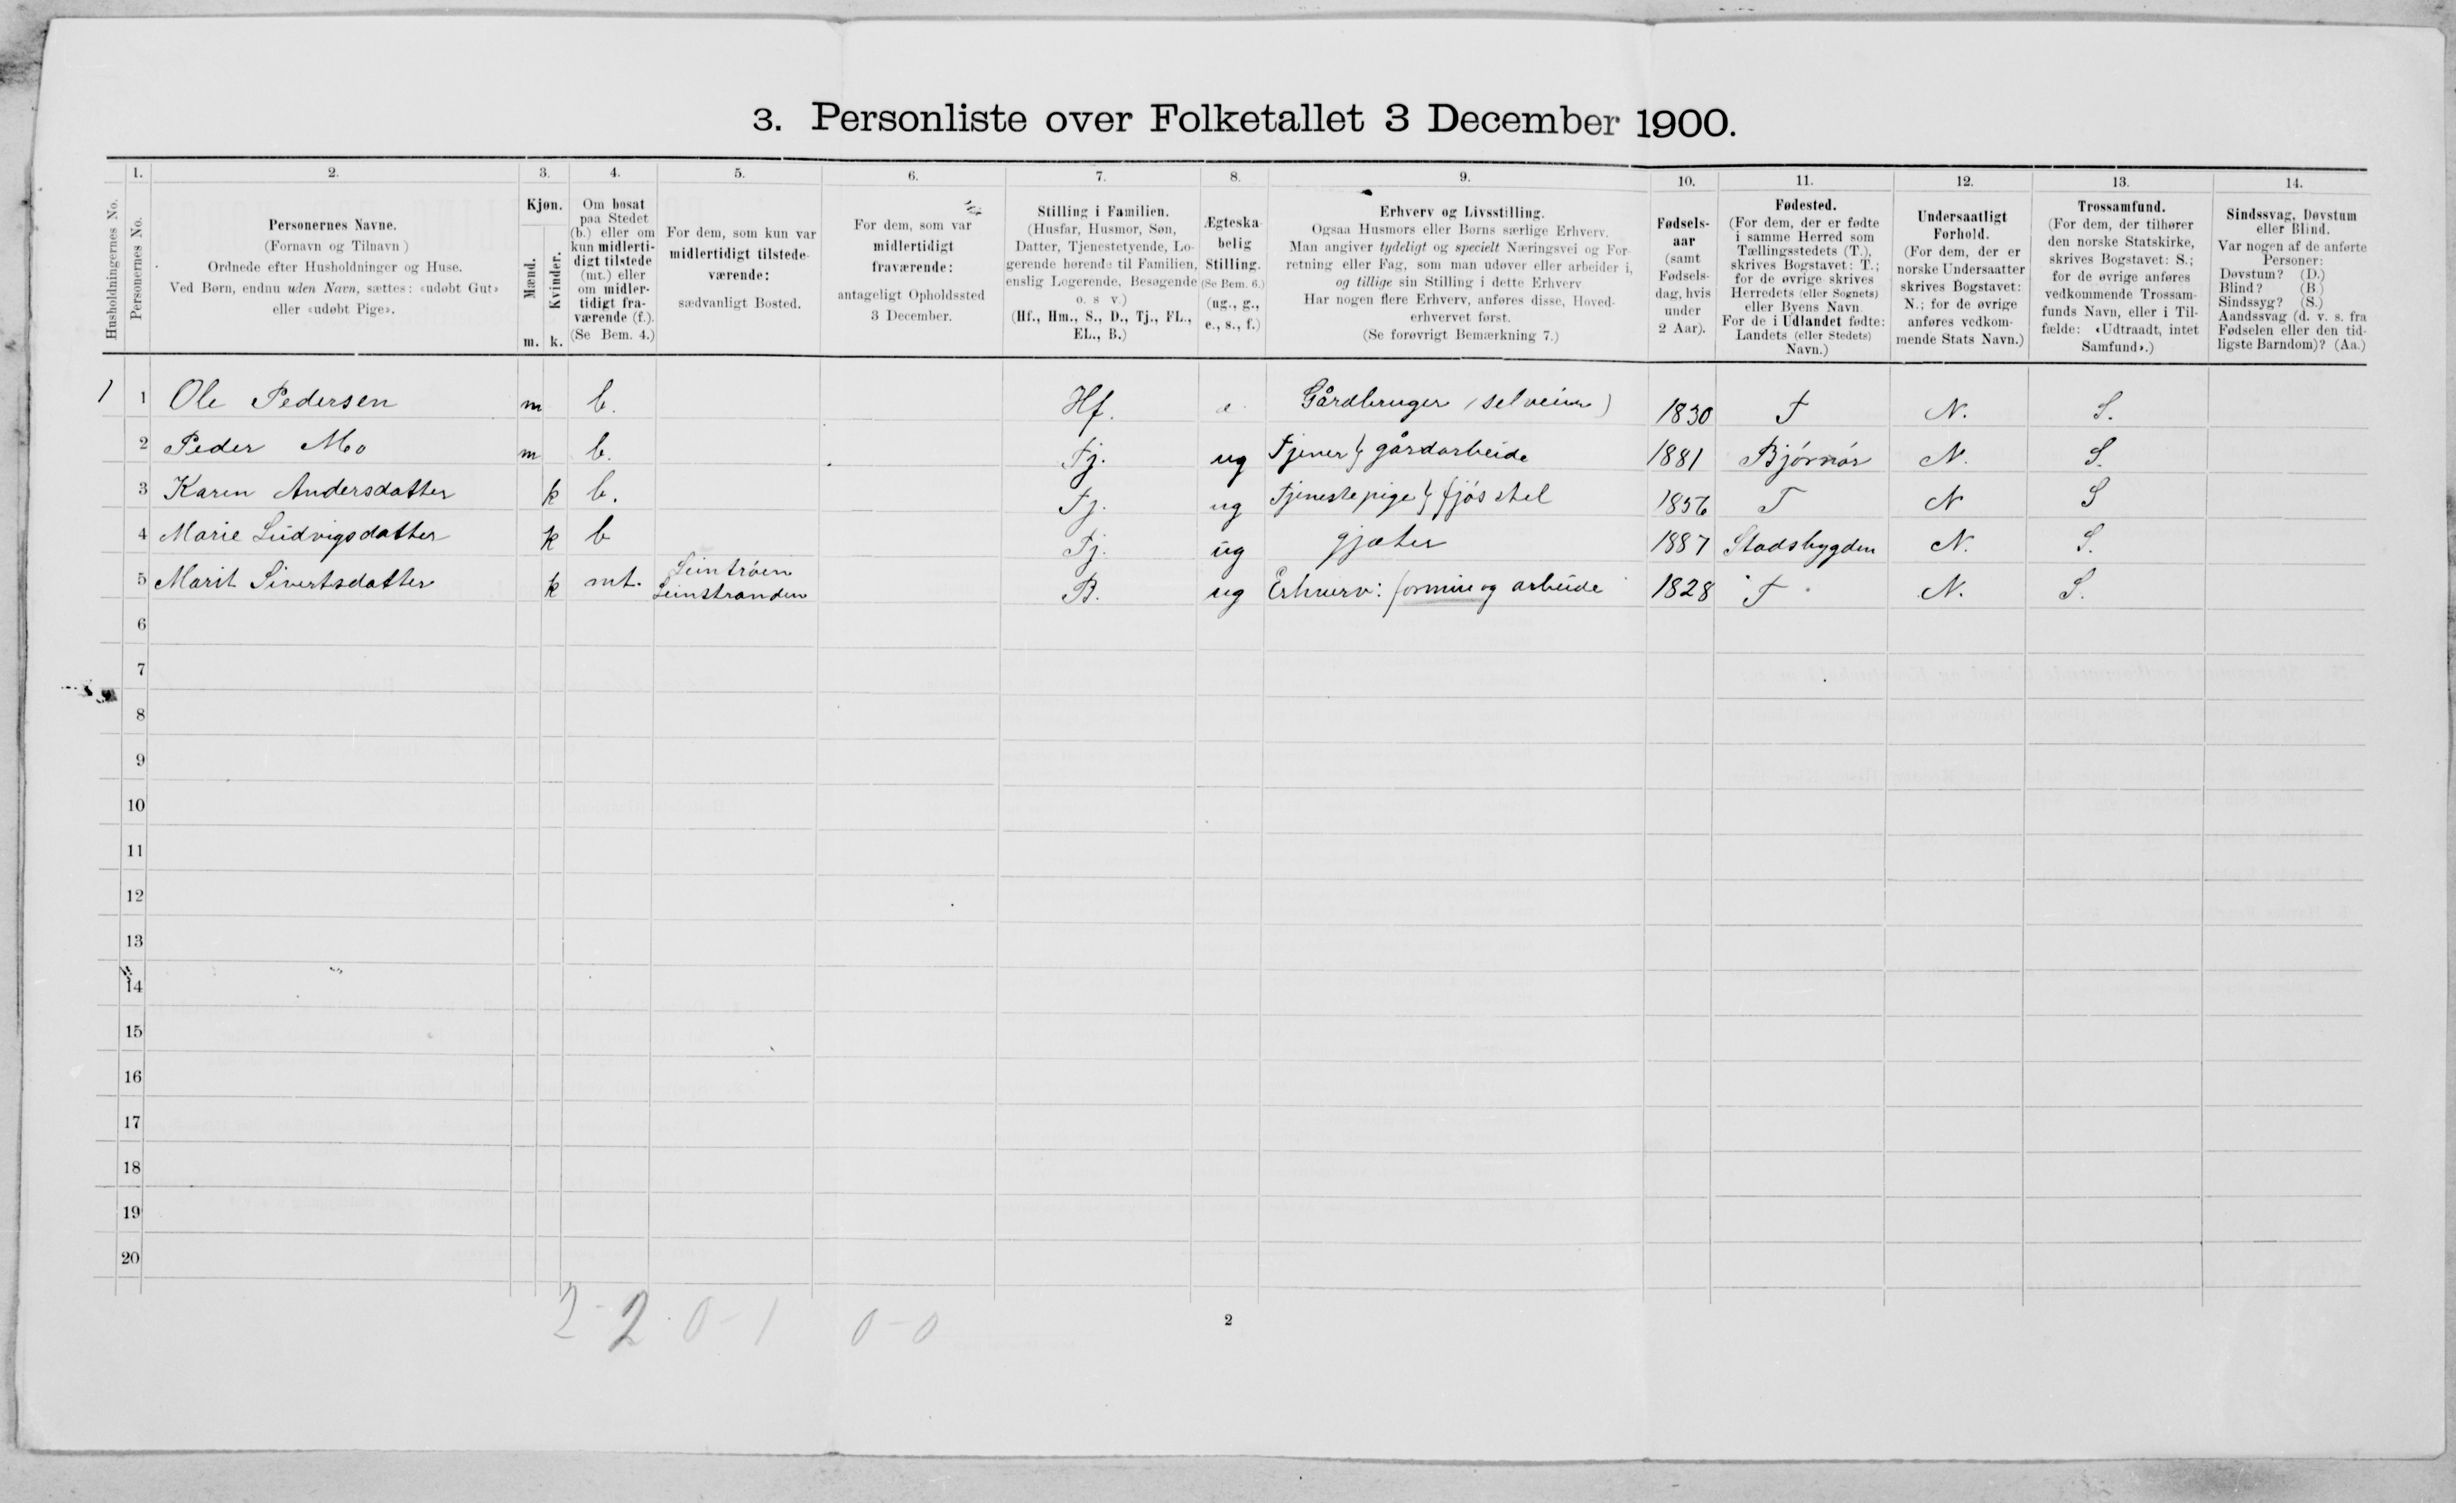 3. Personliste over Folketallet 3 December 1900.
1. 2. 3. 4. 5. 6. 7. 8. 9. 10. 11. 12. 13. 14.
Husholdningernes No.
Personernes No.
Personernes Navne.
(Fornavn og Tilnavn)
Ordnede efter Husholdninger og Huse.
Ved Børn, endnu uden Navn, sættes: «udøbt Gut»
eller «udøbt Pige».
Kjøn.
Mænd.
Kvinder.
m. k.
Om bosat
paa Stedet
(b.) eller om
kun midlerti-
digt tilstede
(mt.) eller
om midler-
tidigt fra-
værende (f.).
(Se Bem. 4.)
For dem, som kun var
midlertidigt tilstede-
værende:
sædvanligt Bosted.
For dem, som var
midlertidigt
fraværende:
antageligt Opholdssted
3 December.
Stilling i Familien.
(Husfar, Husmor, Søn,
Datter, Tjenestetyende, Lo-
gerende hørende til Familien,
enslig Logerende, Besøgende
o. s v.)
(Hf., Hm., S., D., Tj., FL.,
EL., B.)
Ægteska-
belig
Stilling.
(Se Bem. 6.)
(ug., g.,
e., s., f.)
Erhverv og Livsstilling.
Ogsaa Husmors eller Børns særlige Erhverv.
Man angiver tydeligt og specielt Næringsvei og For-
retning eller Fag, som man udøver eller arbeider i,
og tillige sin Stilling i dette Erhverv
Har nogen flere Erhverv, anføres disse, Hoved-
erhvervet først.
(Se forøvrigt Bemærkning 7.)
Fødsels-
aar
(samt
Fødsels-
dag, hvis
under
2 Aar).
Fødested.
(For dem, der er fødte
i samme Herred som
Tællingsstedets (T.),
skrives Bogstavet: T.;
for de øvrige skrives
Herredets (eller Sognets)
eller Byens Navn.
For de i Udlandet fødte:
Landets (eller Stedets)
Navn.)
Undersaatligt
Forhold.
(For dem, der er
norske Undersaatter
skrives Bogstavet:
N.; for de øvrige
anføres vedkom-
mende Stats Navn.)
Trossamfund.
(For dem, der tilhører
den norske Statskirke,
skrives Bogstavet: S.;
for de øvrige anføres
vedkommende Trossam-
funds Navn, eller i Til-
fælde: «Udtraadt, intet
Samfund».)
Sindssvag, Døvstum
eller Blind.
Var nogen af de anførte
Personer:
Døvstum? (D.)
Blind? (B.)
Sindssyg? (S.)
Aandssvag (d. v. s. fra
Fødselen eller den tid-
ligste Barndom)? (Aa.)
1 1 Ole Pedersen m b. Hf. e Gårdbruger (selveier) 1830 T N. S.
2 Peder Mo m b. Tj. ug Tjener } gårdarbeide 1881 Bjørnør N. S.
3 Karen Andersdatter k b. Tj. ug Tjenestepige } fjøsstel 1856 T N S
4 Marie Ludvigsdatter k b Tj. ug gjæter 1887 Stadsbygden N. S.
5 Marit Sivertsdatter k mt. Leintrøen
Leinstranden B. ug Erhverv: formue og arbeide 1828 T N. S.
6
7
8
9
10
11
12
13
14
15
16
17
18
19
20
2-2 0-1 0-0
2